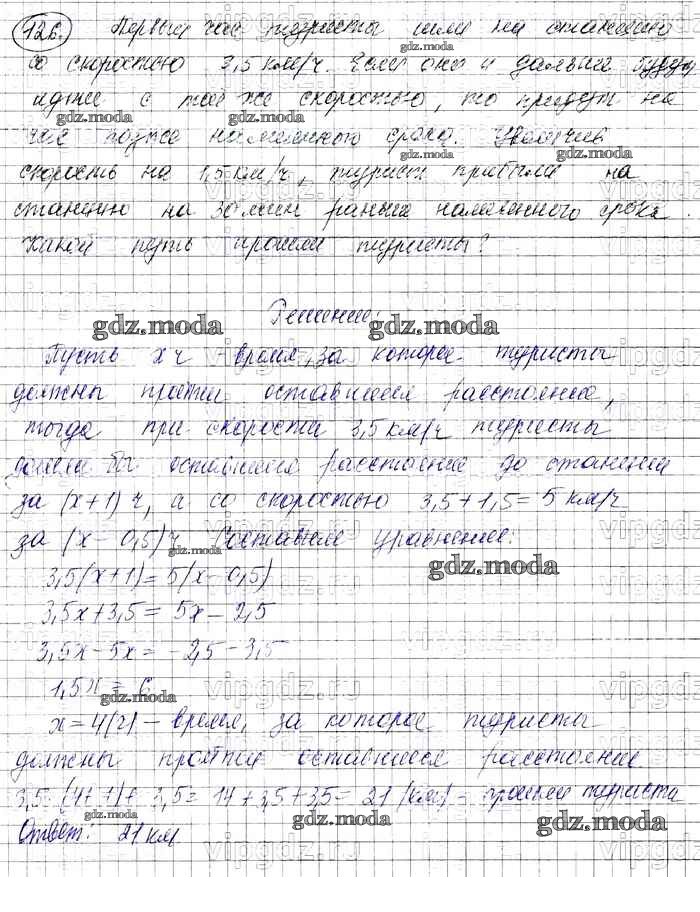 126. Первый час туристы шли на станцию
со скоростью 3,5 км/ч. Если они и дальше будут
идти с той же скоростью, то придут на
час позже намеченного срока. Увеличив
скорость на 1,5 км/ч, туристы прибыли на
станцию на 30 мин раньше намеченного срока.
Какой путь прошли туристы?
Решение:
Пусть x ч - время, за которое туристы
должны пройти оставшееся расстояние,
тогда при скорости 3,5 км/ч туристы
дошли бы оставшееся расстояние до станции
за (x+1) ч, а со скоростью 3,5+1,5=5 км/ч
за (x-0,5) ч. Составим уравнение:
3,5(x+1)=5(x-0,5)
3,5x+3,5=5x-2,5
3,5x-5x=-2,5-3,5
1,5x=6
x=4(ч) - время, за которое туристы
должны пройти оставшееся расстояние
3,5·(4+1)+3,5=14+3,5+3,5=21 (км) - прошли туристы
Ответ: 21 км
gdz.moda
vipgdz.ru